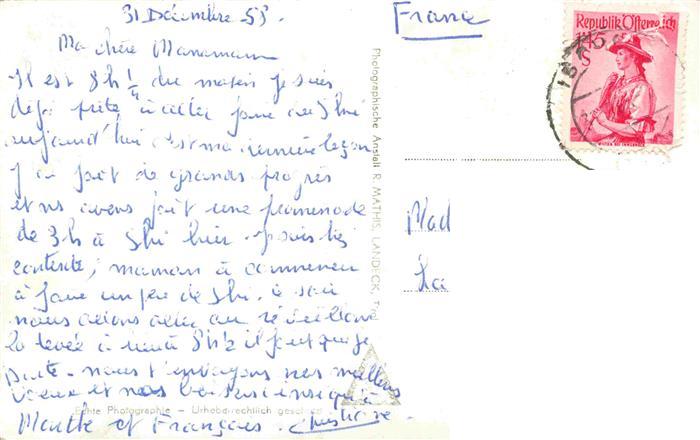 31 Décembre 53.
Ma chère Manamam
Il est 8h 1/4 du matin je suis
déjà prête à aller faire du Ski
aujourd'hui c'est ma dernière leçon
J'ai fait de grands progrès
et ns avons fait une promenade
de 3h à Ski hier. Je suis très
contente, maman a commencé
à faire un peu de Ski. Ce soir
nous allons aller au réveillon
la levée à 8h 1/2 il faut que je
parte. nous t'envoyons nos meilleurs
voeux et nos baisers ainsi qu'à
et François. Christiane.
France
Republik Österreich
1S
Mad
La
Photographische Anstalt R. MATHIS, LANDECK, Tirol
Echte Photographie – Urheberrechtlich